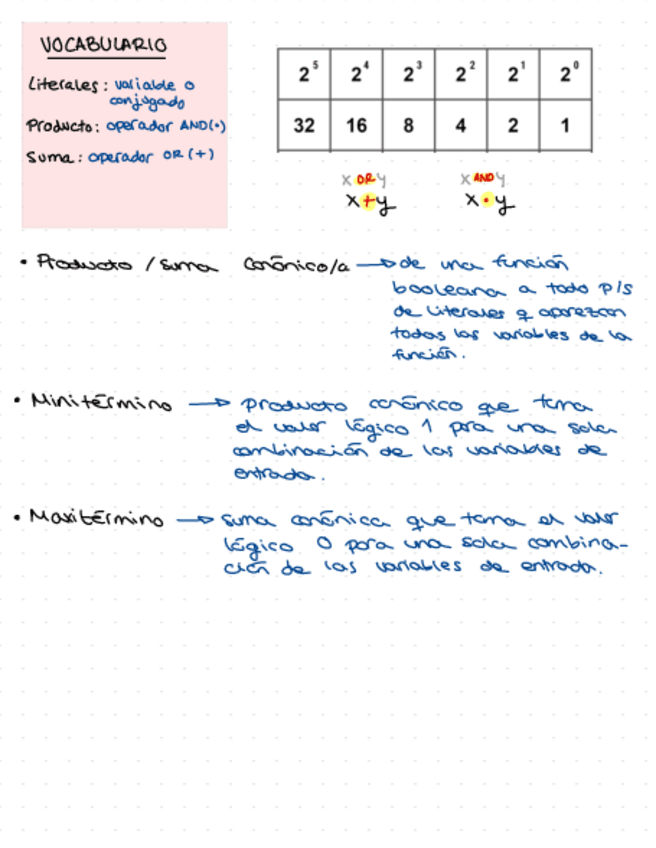 VOCABULARIO
Literales: variable o
conjugado
Producto: operador AND(•)
Suma: operador OR (+)
2⁵ 2⁴ 2³ 2² 2¹ 2⁰
32 16 8 4 2 1
X OR Y X AND Y
x+y x•y
• Producto / suma canónico/a → de una función
booleana a todo p/s
de literales q aparezcan
todas las variables de la
función.
• Minitérmino → producto canónico que toma
el valor lógico 1 para una sola
combinación de las variables de
entrada.
• Maxitérmino → suma canónica que toma el valor
lógico 0 para una sola combina-
ción de las variables de entrada.